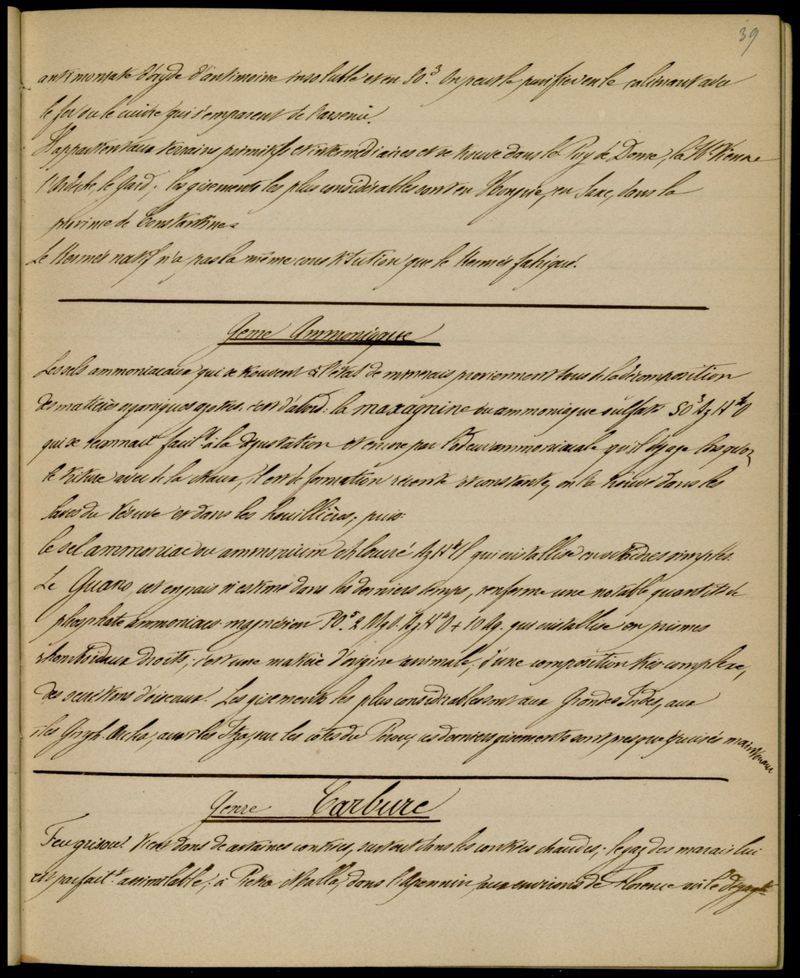 39
antimoniate d'oxyde d'antimoine insoluble et en SO³. On peut le purifier en le calcinant avec
le fer ou le cuivre qui s'emparent de l'arsenic.
Il appartient aux terrains primitifs et intermédiaires et se trouve dans le Puy de Dôme, la Hte Vienne
l'Ardèche le Gard; les gisements les plus considérables sont en Hongrie, en Saxe, dans la
province de Constantine.
Le Kermès natif n'a pas la même constitution que le Kermès fabriqué.
Genre Ammoniaque
Les sels ammoniacaux qui se trouvent à l'état de minerais proviennent tous de la décomposition
des matières organiques azotées. c'est d'abord: la maxagnine ou ammoniaque sulfatée SO³ Az H⁴O
qui se reconnait facilt à la dégustation et encore par l'odeur ammoniacale qu'il dégage lorsqu'on
le triture avec de la chaux, il est de formation récente et constante, on la trouve dans les
laves du Vésuve et dans les houillières, puis:
le sel ammoniac ou ammonium chloruré Az H⁴ Cl qui cristallise en octaèdres simples.
Le Guano, cet engrais si estimé dans les derniers temps, renferme une notable quantité de
phosphate ammoniaco magnésien PO⁵ 2 MgO. Az H⁴O + 10 Aq. qui cristallise en prismes
rhomboïdaux droits; c'est une matière d'origine animale, d'une composition très complexe,
des secrétions d'oiseaux. Les gisements les plus considérables sont aux Grandes Indes, aux
îles sur les côtes du Pérou, ces derniers gisements sont presque épuisés maintenant
Genre Carbure
Feu grisou? vient dans de certaines contrées, surtout dans les contrées chaudes; le gaz des marais lui
est parfaitt assimilable; à Pietra Malla, dans l'Apennin, aux environs de Florence où il se dégage